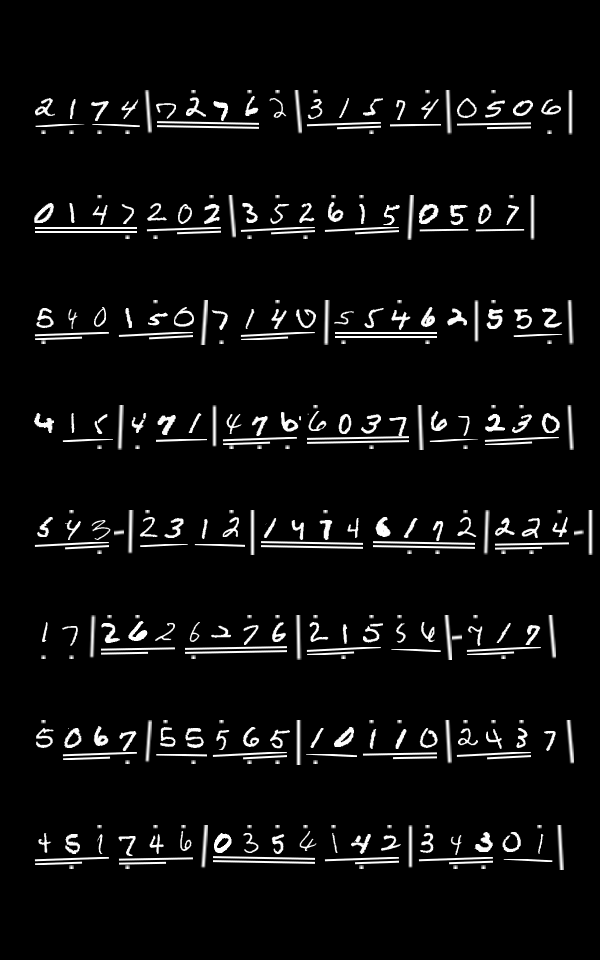 2174|72762|31574|0506
0147202|352615|0507
540150|7140|55462|552
415|471|4766037|67230
543-|2312|14746172|224-|
17|2626276|21556|-717
5067|55565|10110|2437
451746|0356142|34301|